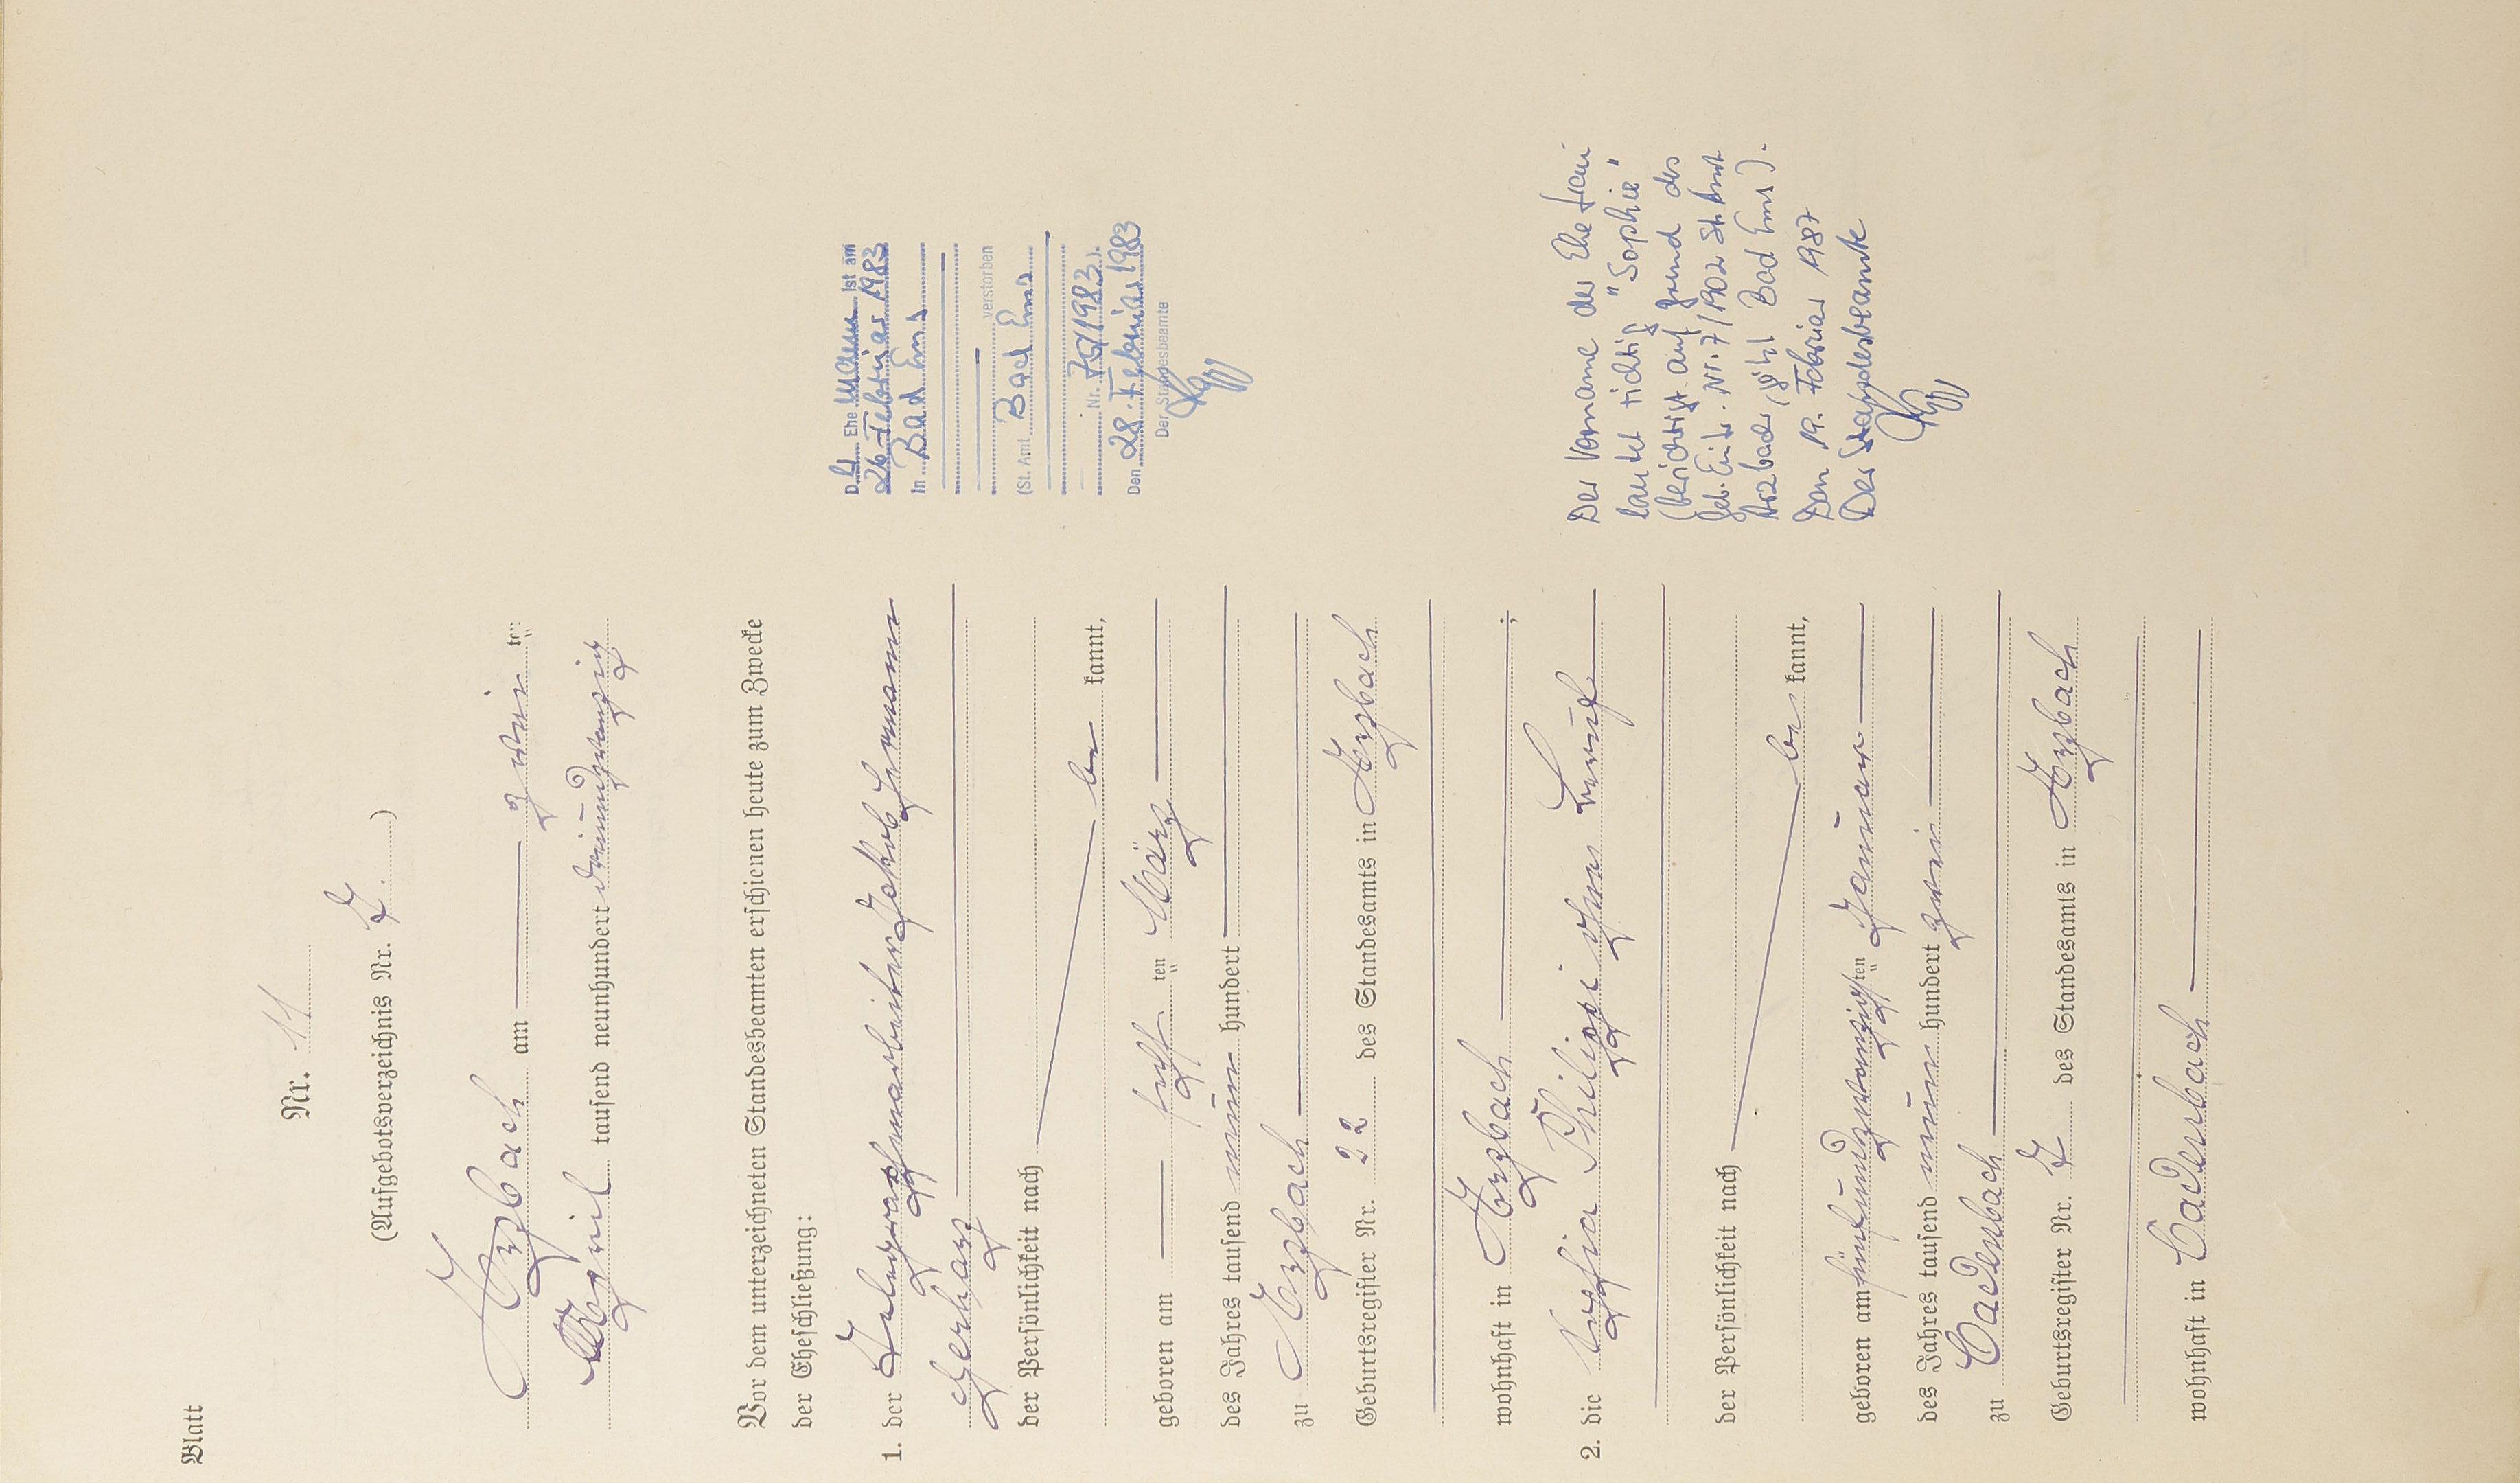 Blatt
Nr. 11
(Aufgebotsverzeichnis Nr. 7.)
Arzbach am zwei ten
April tausend neunhundert dreiundzwanzig
Vor dem unterzeichneten Standesbeamten erschienen heute zum Zwecke
der Eheschließung:
1. der Telegraphenarbeiter Jakob Hermann
Gerharz
der Persönlichkeit nach
be kannt,
geboren am sechsten März
des Jahres tausend neun hundert
zu Arzbach
Geburtsregister Nr. 22 des Standesamts in Arzbach
wohnhaft in Arzbach ;
2. die Sophia Philippi ohne Beruf
der Persönlichkeit nach
be kannt,
geboren am fünfundzwanzigsten Januar
des Jahres tausend neun hundert zwei
zu Cadenbach
Geburtsregister Nr. 7 des Standesamts in Arzbach
wohnhaft in Cadenbach
Ehe Mann ist am
26. Februar 1983
In Bad Ems
verstorben
(St. Amt Bad Ems
Nr. /1983).
Den 28. Februar 1983
Der Standesbeamte
Der Vorname der Ehefrau
lautet richtig "Sophie"
(berichtigt auf Grund des
Geb. Eintr. Nr. 7/1902 St. Amt
Arzbach, jetzt Bad Ems).
Den 19. Februar 1987
Der Standesbeamte